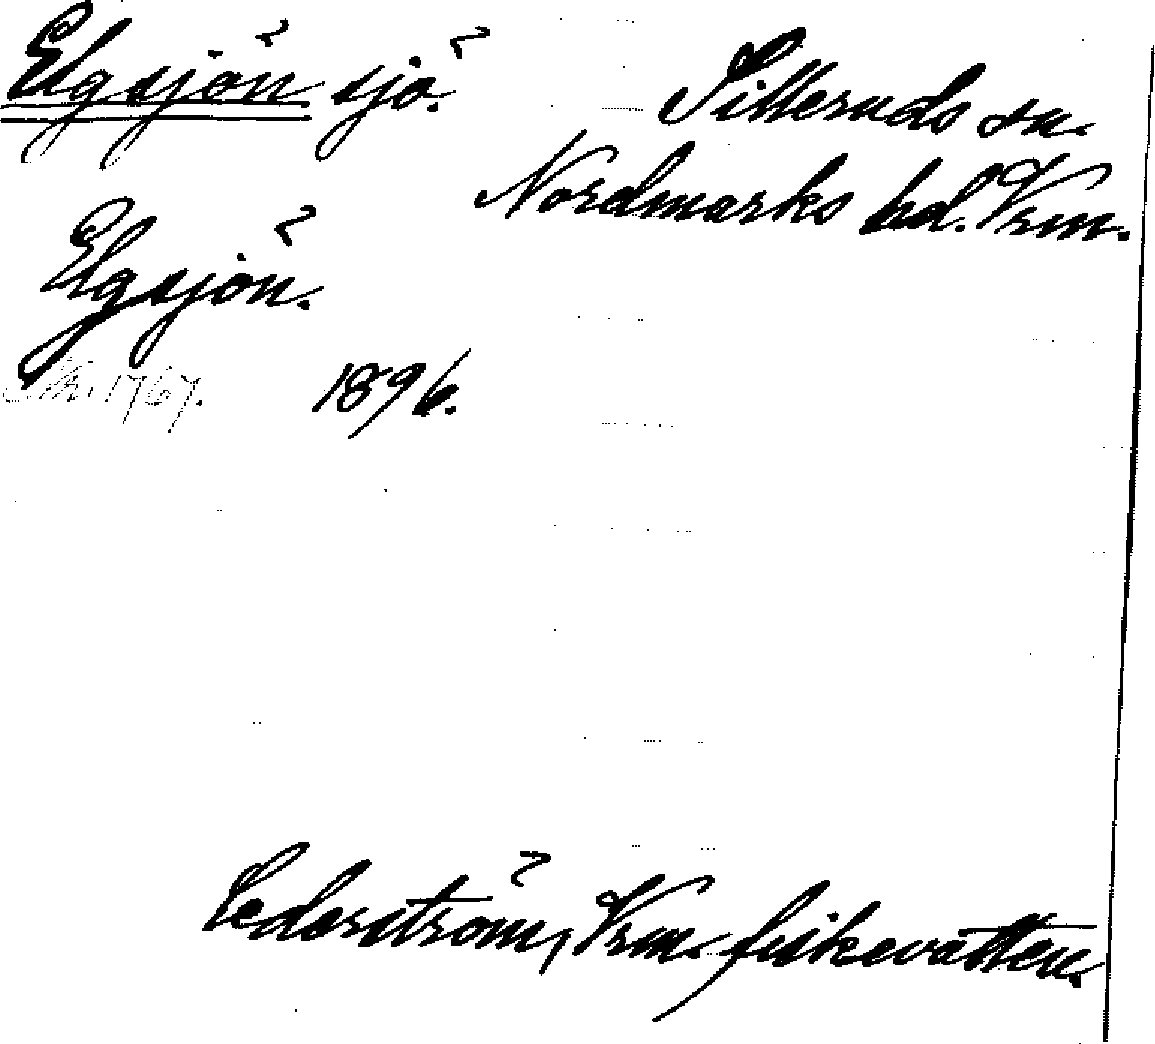 Elgsjön sjö.
Silleruds sn.
Nordmarks hd. Vrm.
Elgsjön.
1767. 1896.
Cederström, Vrm. fiskevatten.